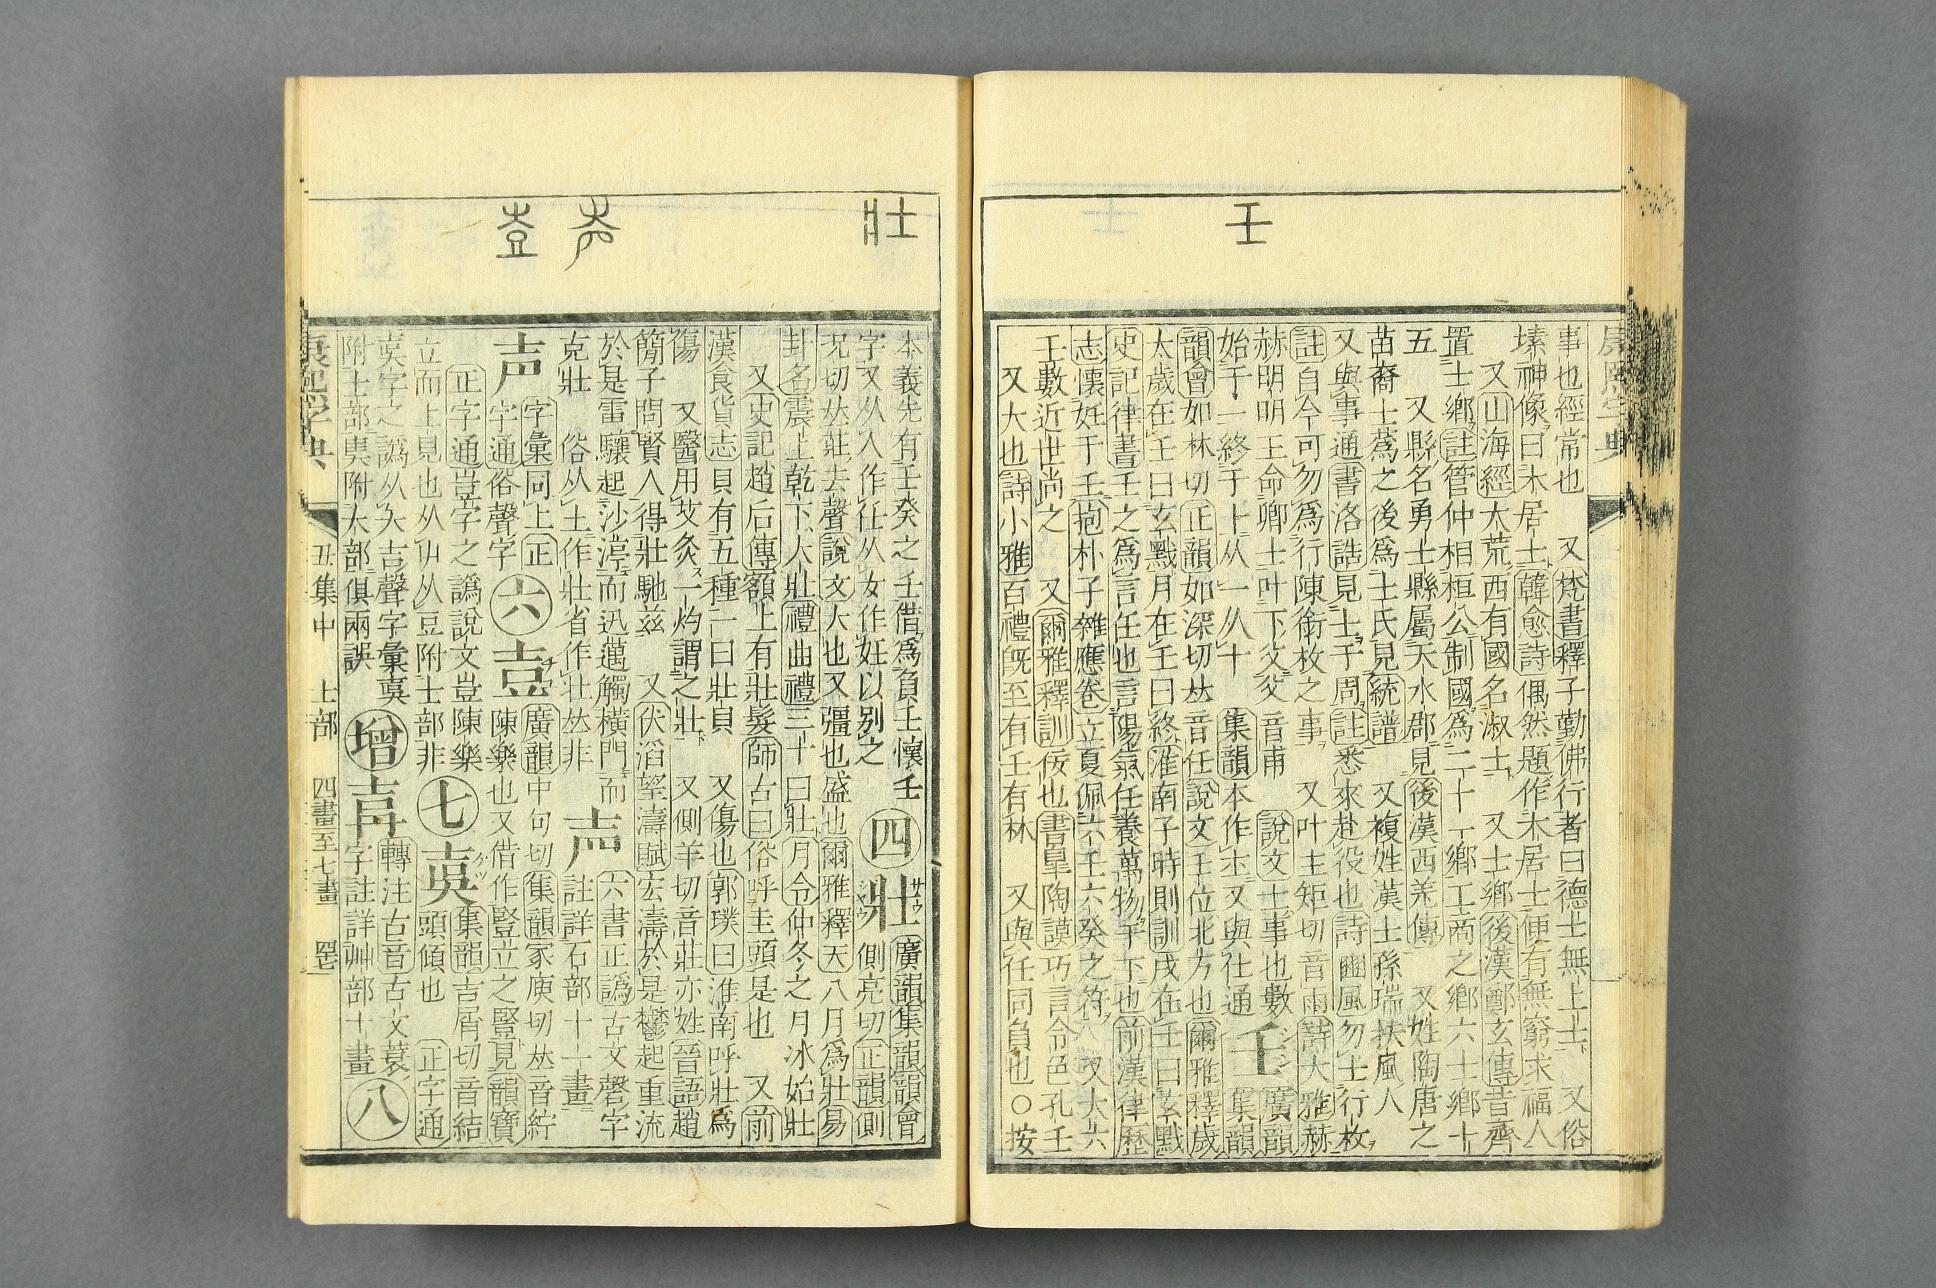 壬
事也經常也　又梵書釋子勤佛行者曰德士無上士　又俗
塐神像曰木居士韓愈詩偶然題作木居士便有無窮求福人
又山海經大荒西有國名淑士　又士鄉後漢鄭玄傳昔齊
置士鄉註管仲相桓公制國爲二十一鄉工商之鄉六士鄉十
五　又縣名勇士縣屬天水郡見後漢西羌傳　又姓陶唐之
苗裔士蔿之後爲士氏見統譜　又複姓漢士孫瑞扶風人
又與事通書洛誥見士于周註悉來赴役也詩豳風勿士行枚
註自今可勿爲行陳銜枚之事　又叶主矩切音雨詩大雅赫
赫明明王命卿士叶下父父音甫　說文士事也數
始于一終于十从一从十　集韻本作士又與仕通　壬　廣韻
集韻
韻會如林切正韻如深切𠀤音任說文壬位北方也爾雅釋歲
太歲在壬曰玄黓月在壬曰終淮南子時則訓戌在壬曰玄黓
史記律書壬之爲言任也言陽氣任養萬物于下也前漢律歷
志懷妊于壬抱朴子雜應卷立夏佩六壬六癸之符　又大六
壬數近世尚之　又爾雅釋訓佞也書皐陶謨巧言令色孔壬
又大也詩小雅百禮旣至有壬有林　又與任同負也○按
壯
本義先有壬癸之壬借爲負壬懷壬　四　壯　廣韻集韻韻會
字又从人作任从女作妊以別之　側亮切正韻側
況切𠀤莊去聲說文大也又彊也盛也爾雅釋天八月爲壯易
卦名震上乾下大壯禮曲禮三十曰壯月令仲冬之月冰始壯
又史記趙后傳額上有壯髮師古曰俗呼圭頭是也　又前
漢食貨志貝有五種二曰壯貝　又傷也郭璞曰淮南呼壯爲
傷　又醫用艾灸一灼謂之壯　又側羊切音莊亦姓晉語趙
簡子問賢人得壯馳茲　又伏滔望濤賦宏濤於是鬱起重流
於是雷驤起沙渟而迅邁觸橫門而　声　六書正譌古文磬字
克壯　俗从土作壮省作壮𠀤非　註詳石部十一畫
声　字彙同上正
字通俗聲字　六　壴　廣韻中句切集韻冢庾切𠀤音紵
陳樂也又借作豎立之豎見韻寶
正字通豈字之譌說文壴陳樂
立而上見也从屮从豆附士部非　七　𡔣　集韻吉屑切音結
頭傾也　正字通
奊字之譌从夨吉聲字彙奊
附士部奊附大部俱兩誤　增　轉注古音古文蓑
字註詳艸部十畫　八
康熙字典　丑集中　士部　四畫至七畫